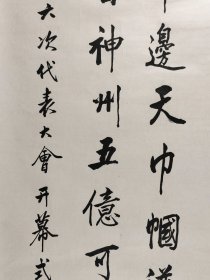 邊天巾幗
神州五億可
六次代表大會开幕式